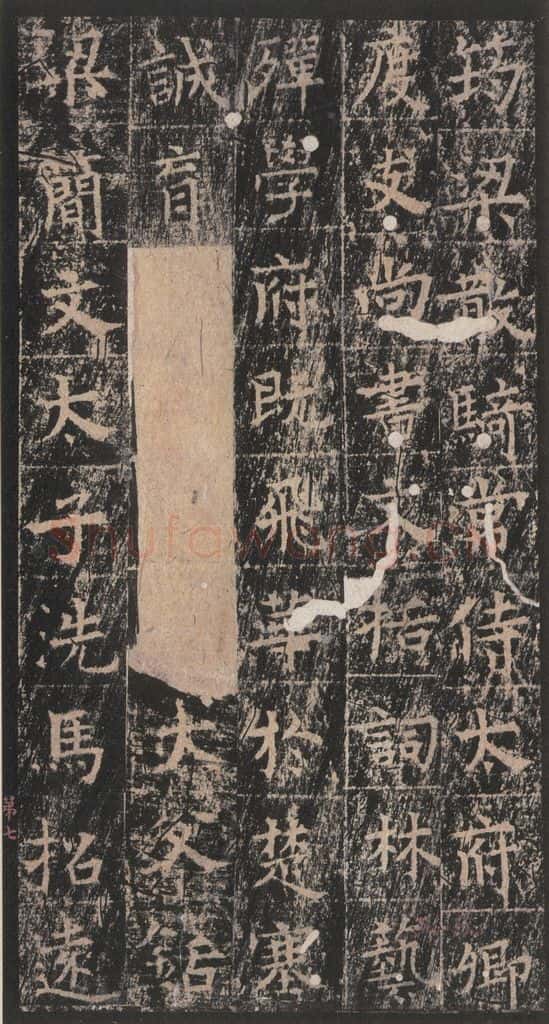 筠梁散騎常侍太府卿
度支尚書文括詞林藝
殫學府既飛華於楚塞
誠育
大
梁簡文太子洗馬招遠
第七
shufawang.cn